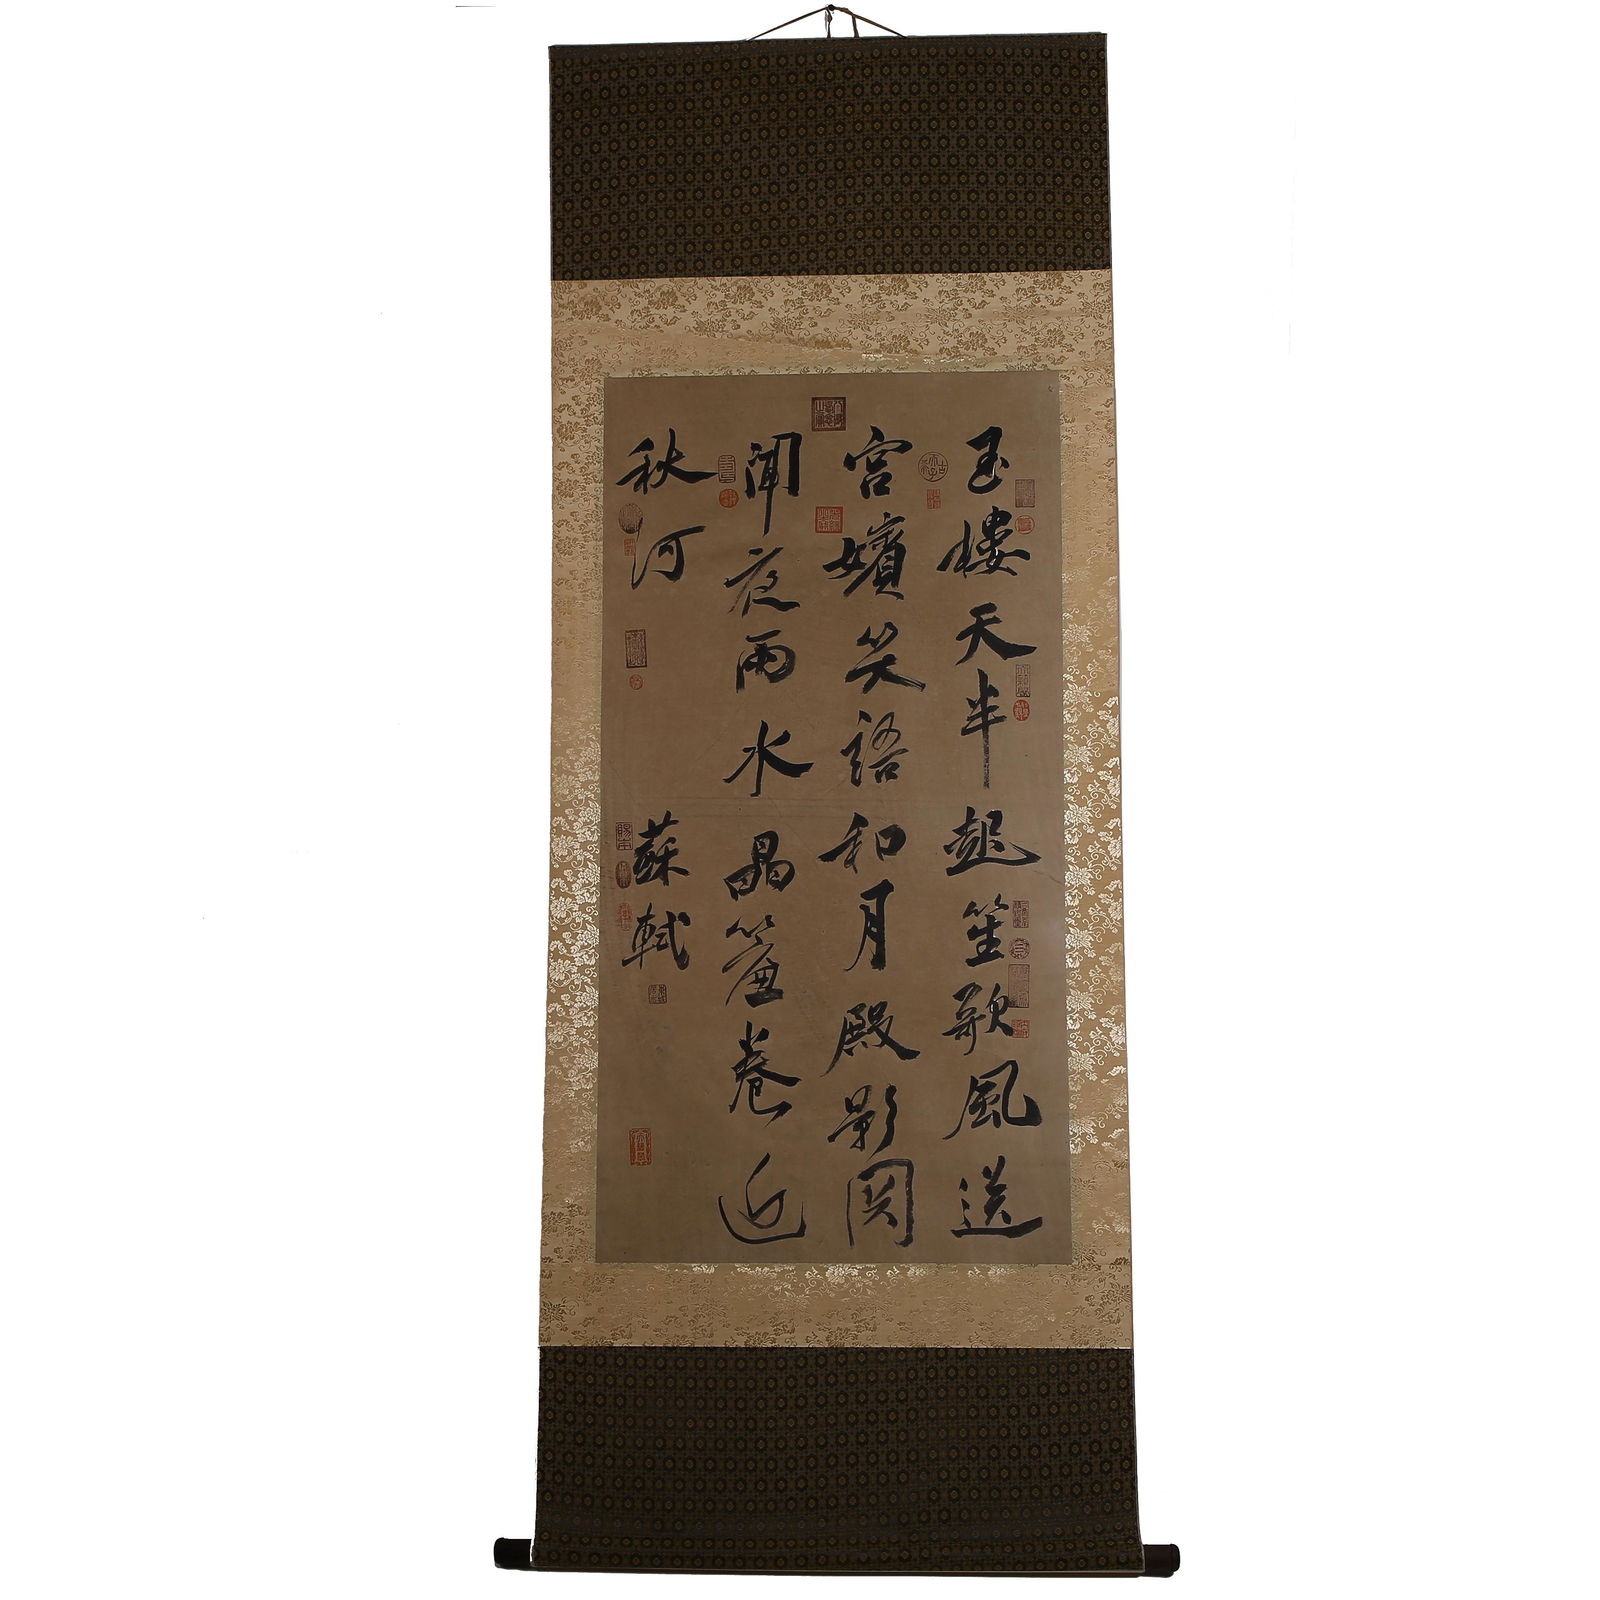 玉楼天半起笙歌風送
宮嬪笑語和月殿影開
聞夜雨水晶簾卷近
秋河
蘇軾